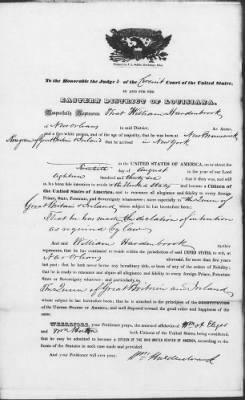 To the Honorable the Judges of the Circuit Court of the United States,
IN AND FOR THE
EASTERN DISTRICT OF LOUISIANA.
Respectfully Represents That William Hardenbrook
of New Orleans in said District,
and a free white person, and of the age of majority, that he was born at New Brunswick
that he arrived in New York
in the UNITED STATES OF AMERICA, on or about the
day of August in the year of our Lord
eighteen hundred and thirty six that it was then, and still is
his bona fide intention to reside in the United States and become a Citizen of
the United States of America, and to renounce all allegiance and fidelity to every foreign
Prince, State, Potentate, and Sovereignty whatsoever; more especially to the Queen of
Great Britain & Ireland whose subject he has heretofore been;
That he has made the declaration of intention
as required by law
And said William Hardenbrook further
represents, that he has continued to reside within the jurisdiction of said UNITED STATES, to wit, at
New Orleans aforesaid, for more than five years
last past; that he hath never borne any hereditary title, or been of any of the orders of Nobility;
that he is ready to renounce and abjure all allegiance and fidelity to every foreign Prince, Potentate
State or Sovereignty whatsoever, and particularly to
The Queen of Great Britain and Ireland
whose subject he has heretofore been; that he is attached to the principles of the CONSTITUTION
OF THE UNITED STATES OF AMERICA, and well disposed toward the good order and happiness of the
same.
WHEREFORE, your Petitioner prays, the annexed affidavits of Wm
and Wm both Citizens of the United States, being considered,
that he may be admitted to become a CITIZEN OF THE SAID UNITED STATES OF AMERICA, according to the
forms of the Statute in such case made and provided.
And your Petitioner will ever pray,
Wm Hardenbrook